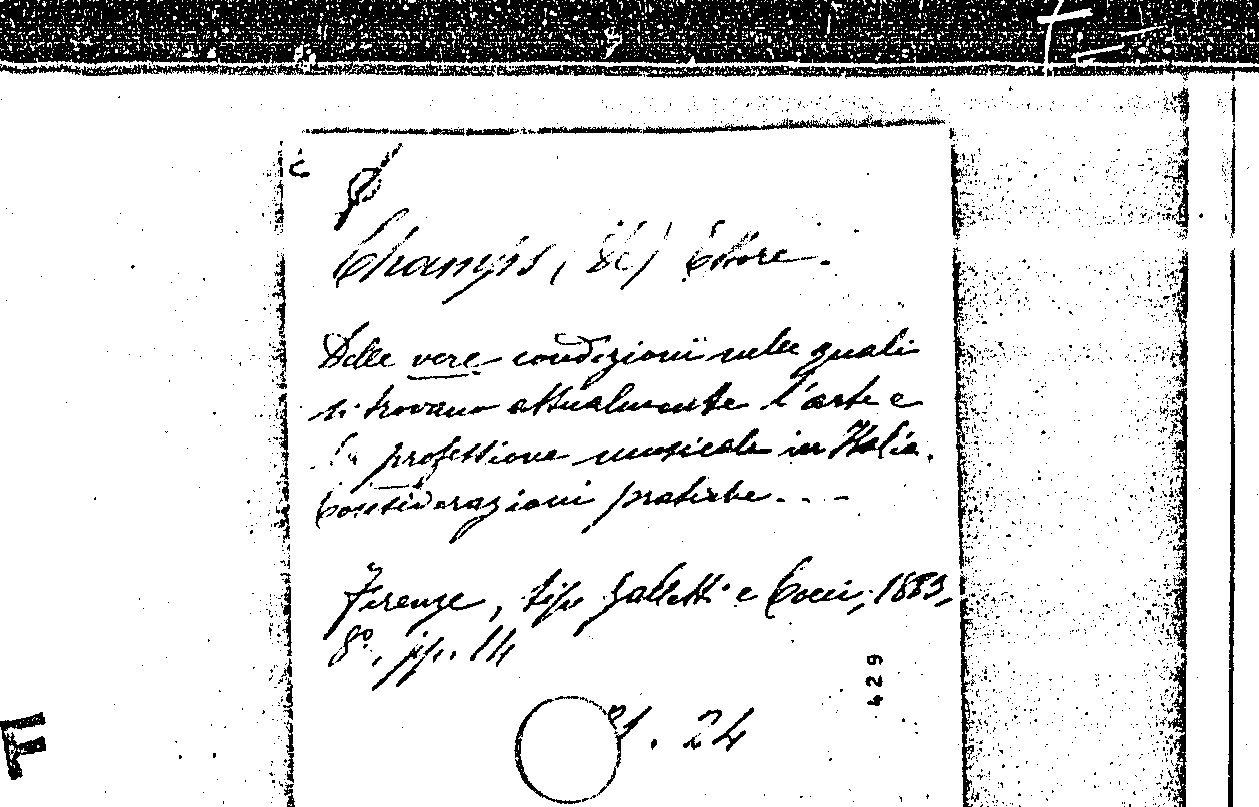 Champs, (De) Ettore.
Delle vere condizioni nelle quali
si trovano attualmente l'arte e
la professione musicale in Italia.
Considerazioni pratiche. - -
Firenze, tip. Galletti e Cocci, 1883,
8º, pp. 14
. 24
429